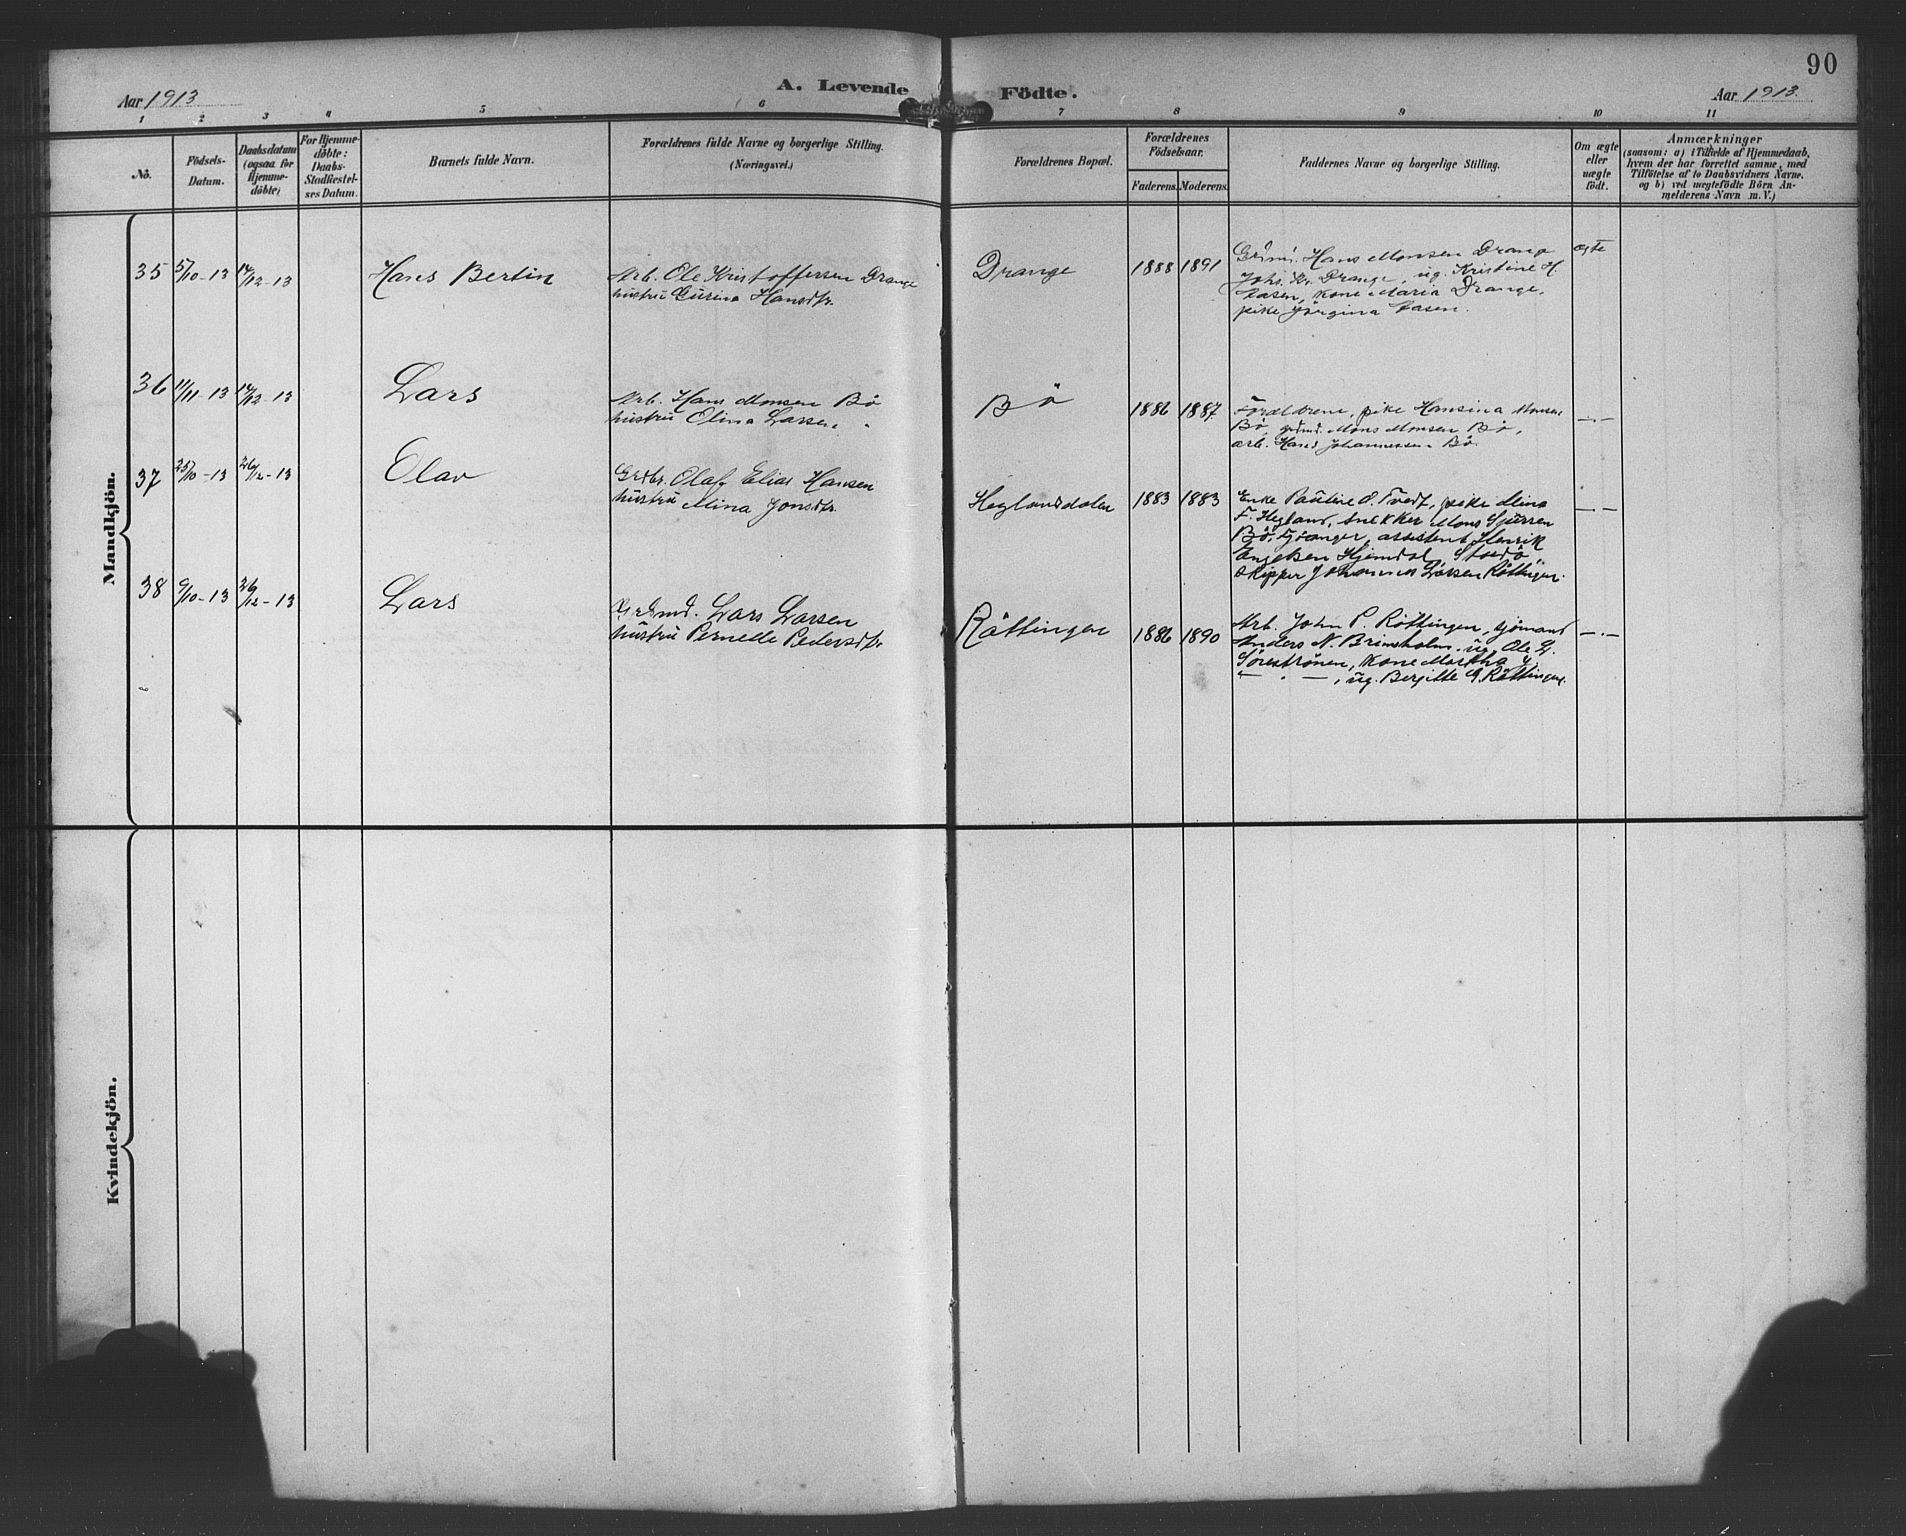 90
Aar 1913
A. Levende
Födte.
Aar 1913.
1 2 3 4 5 6 7 8 9 10 11
No.
Födsels-
Datum.
Daabsdatum
(ogsaa for
Hjemme-
döbte)
For Hjemme-
döbte:
Daabs-
Stadfæstel-
ses Datum.
Barnets fulde Navn.
Forældrenes fulde Navne og borgerlige Stilling.
(Næringsvei.)
Forældrenes Bopæl.
Forældrenes
Födselsaar.
Faderens.
Moderens.
Faddernes Navne og borgerlige Stilling.
Om ægte
eller
uægte
födt.
Anmærkninger
(saasom: a) i Tilfælde af Hjemmedaab,
hvem der har forrettet samme, med
Tilföielse af to Daabsvidners Navne.
og b) ved uægtefödte Börn An-
melderens Navn m. V.)
Mandkjön.
35 5/10-13 14/12-13
Hans Bertin
Arb. Ole Kristoffersen Drange
hustru Gurina Hansdtr.
Drange
1888 1891
Hans Monsen Drange
Johs. Kr. Drange, ug. Kristine H.
kone Maria Drange,
pike Jörgina
ægte
36 11/11-13 14/12-13
Lars
Arb. Hans Monsen Bö
hustru Olina Larsen. "
Bö
1886 1887
Forældrene, pike Hansina Monsen
Bö, grdmd. Mons Monsen Bö,
arb. Hans Johannessen Bö.
—.—
37 25/10-13 26/12-13
Olav
Grdbr. Olaf Elias Hansen
hustru Mina Jonsdtr.
Heglanddalen
1883 1883
Enke Pauline O. Tvedt, pike Mina
F. Hegland, snekker Mons Sjursen
Bö, assistent Henrik
Engelsen Hjemdal,
skipper Johannes Larsen Röttingen.
—.—
38 9/10-13 26/12-13
Lars
Grdmd. Lars Larsen
hustru Pernelle Pedersdtr.
Röttingen
1886 1890
Arb. John P. Röttingen, sjömand
Anders N. Brimsholm, ug. Ole G.
Söreströnen, kone Martha G
— . —, ug. Bergitte G. Röttingen.
—.—
Kvindekjön.